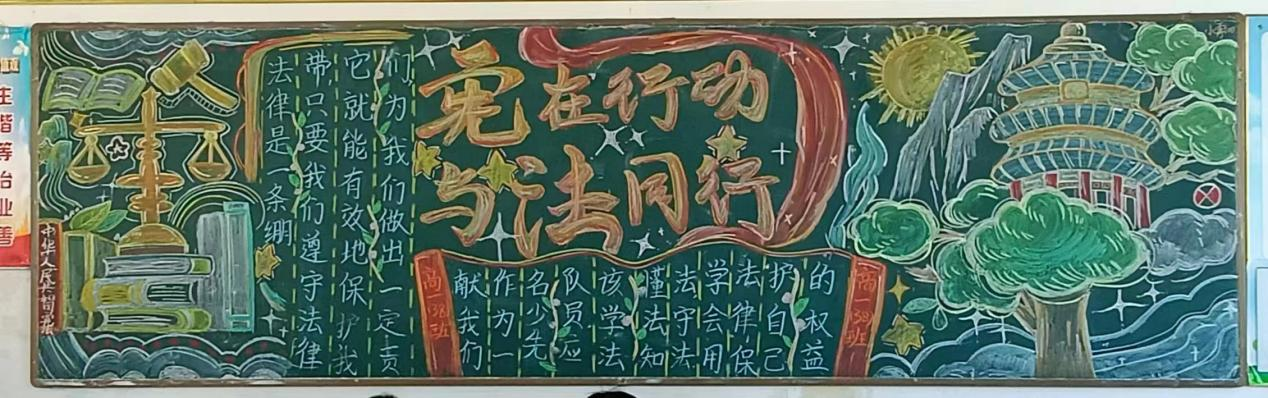 宪在行动
与法同行
法律是一条绷
带,只要我们遵守法律
它就能有效地保护我
们,为我们做出一定责
高一(38)班
献我们
作为一
名少先
队员应
该学法
懂法知
法守法
学会用
法律保
护自己
的权益
高一(38)班
中华人民共和国